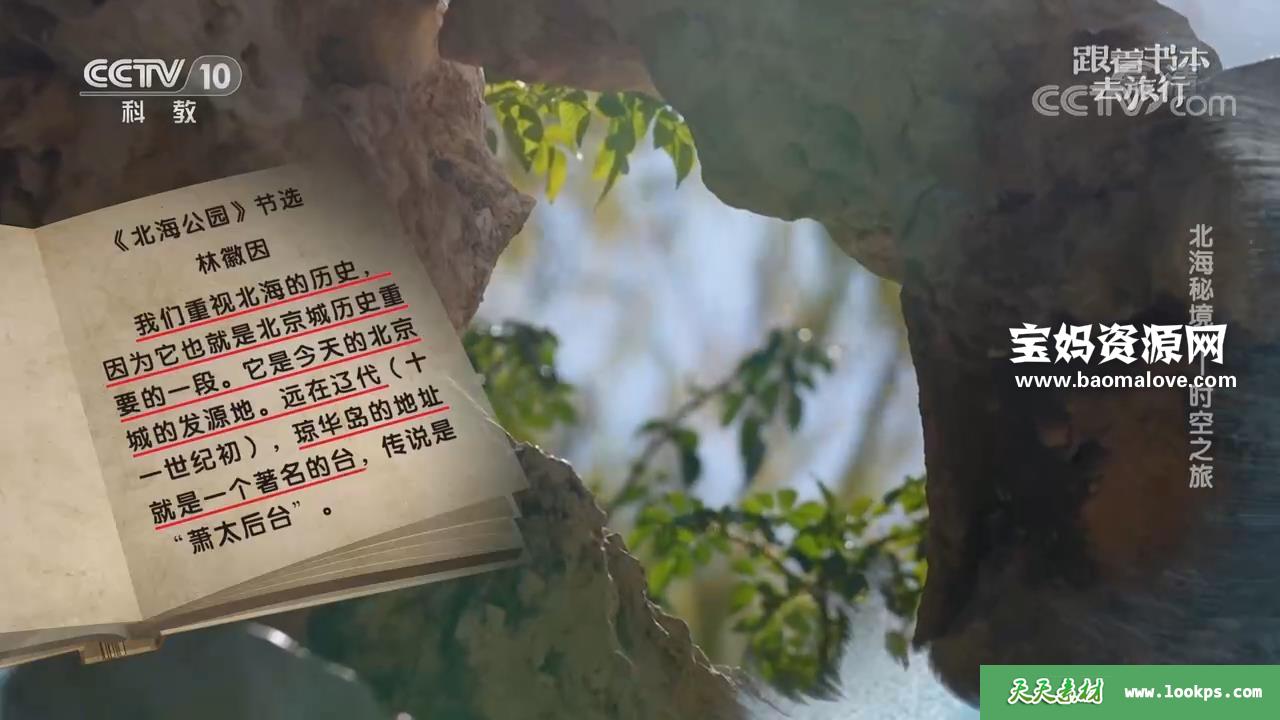 CCTV 10
科教
跟着书本
去旅行
CCTV.com
《北海公园》节选
林徽因
我们重视北海的历史，
因为它也就是北京城历史重
要的一段。它是今天的北京
城的发源地。远在辽代（十
一世纪初），琼华岛的地址
就是一个著名的台，传说是
“萧太后台”。
北海秘境 时空之旅
宝妈资源网
www.baomalove.com
天天素材 www.lookps.com